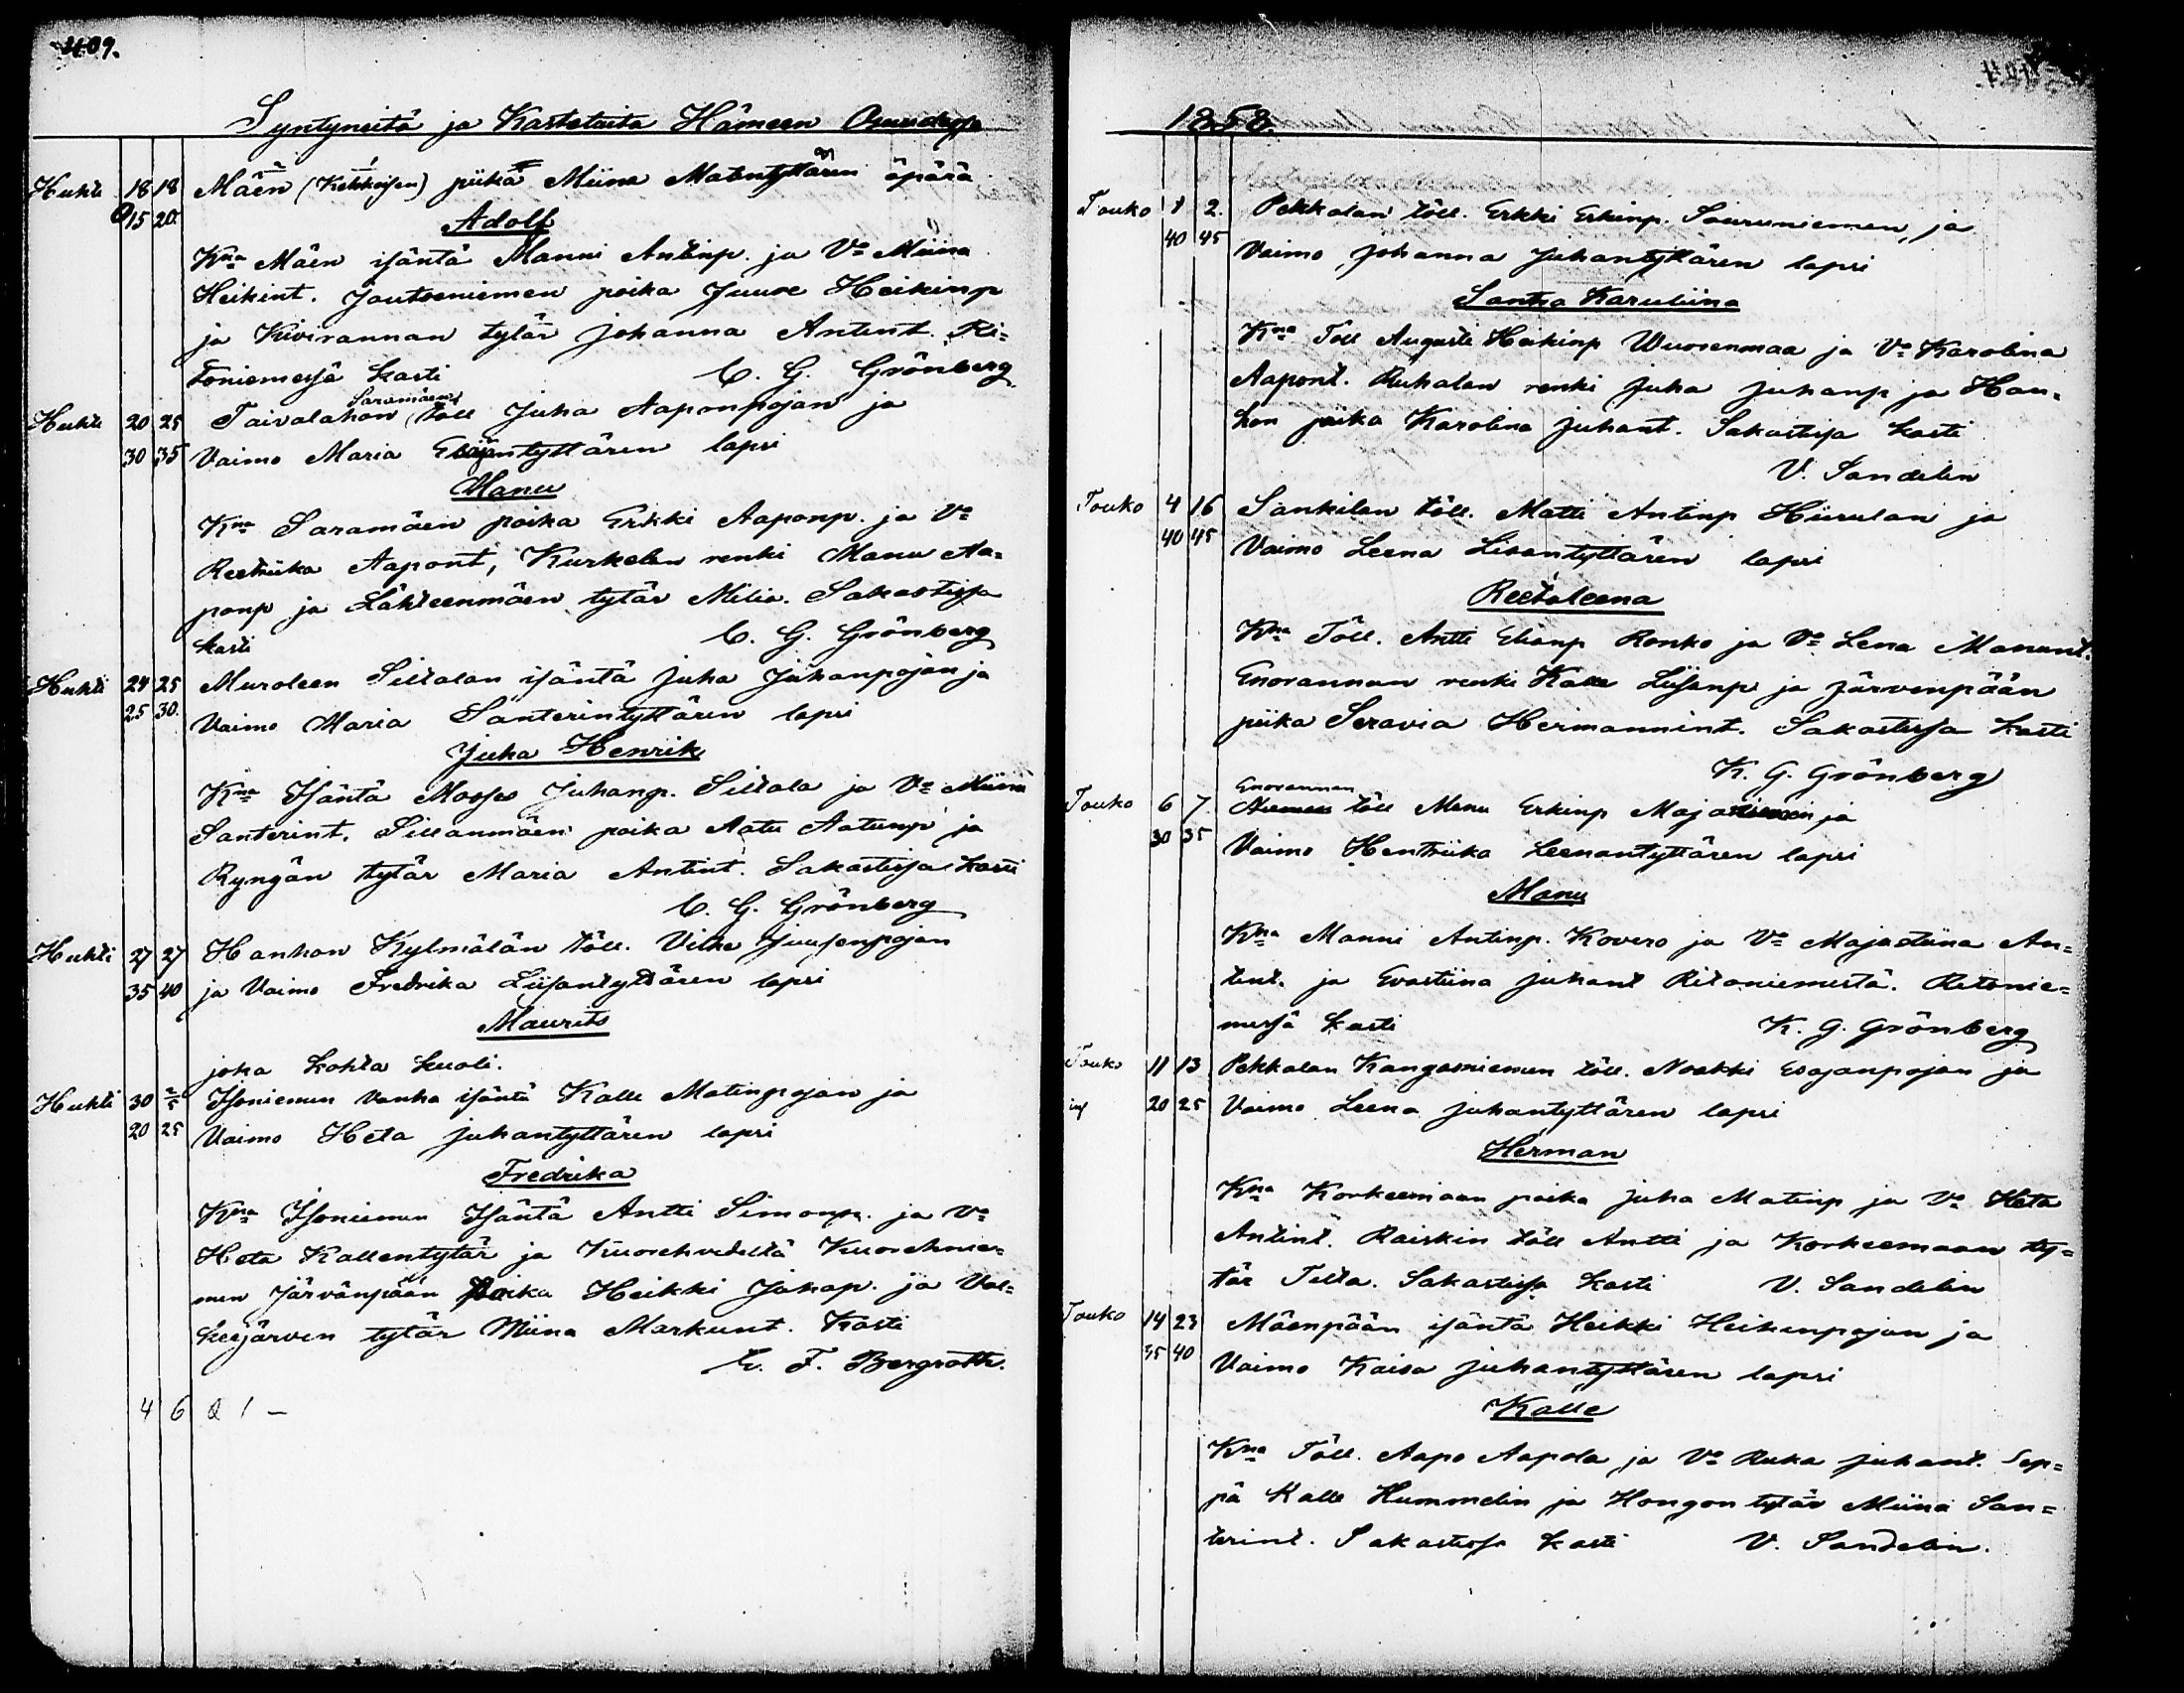 409.
Syntyneitä ja Kastetuita Hämeen Osuudessa
Huhti 18 18 Mäen (Kekkoisen) piika Miina Matintyttären äpärä
15 20. Adolf
Kna Mäen isäntä Manni Antinp. ja Vo Miina
Heikint. Joutseniemen poika Juuse Heikinp
ja Kivirannan tytär Johanna Antint. Ri=
toniemessä kasti C. G. Grönberg
Saramäen
Huhti 20 25 Taivalahon töll Juha Aaponpojan ja
30 35 Vaimo Maria Eliäntyttären lapsi
Manu
Kna Saramäen poika Erkki Aaponp. ja Vo
Reetriika Aapont, Kurkelan renki Manu Aa=
ponp ja Lähteenmäen tytär Milia. Sakastissa
kasti C. G. Grönberg
Huhti 24 25 Muroleen Siltalan isäntä Juha Juhanpojan ja
25 30. Vaimo Maria Santerintyttären lapsi
Juha Henrik
Kna Isäntä Mooses Juhanp. Siltala ja Vo Miina
Santerint. Sillanmäen poika Aatu Aatunp ja
Ryngän tytär Maria Antint. Sakastissa kasti
C. G. Grönberg
Huhti 27 27 Hankon Kylmälän töll. Vilhe Juusenpojan
35 40 ja Vaimo Fredrika Liisantyttären lapsi
Maurits
joka kohta kuoli.
Huhti 30 2/5 Isoniemen vanha isäntä Kalle Matinpojan ja
20 25 Vaimo Heta Juhantyttären lapsi
Fredrika
Kna Isoniemen Isäntä Antti Simonp. ja Vo
Heta Kallentytär ja Kuorehvedeltä Kuorehnie=
men Järvänpään Poika Heikki Jahap. ja Val=
keejärven tytär Miina Markunt. Kasti
E. F. Bergroth.
4 6 a 1 –
1858.
Touko 1 2. Pekkalan töll. Erkki Erkinp. Souruniemen, ja
40 45 Vaimo, Johanna Juhantyttären lapsi
Santra Karuliina
Kna Töll Augusti Heikinp Wuorenmaa ja Vo Karolina
Aapont. Ruhalan renki Juha Juhanp ja Han=
kon piika Karolina Juhant. Sakastissa kasti
V. Sandelin
Touko 4 16 Sankilan töll. Matti Antinp Hiirulan ja
40 45 Vaimo Leena Lisantyttären lapsi
Reetaleena
Kna Töll. Antti Elianp Ronko ja Vo Lena Manunt.
Enorannan renki Kalle Liisanp ja Järvenpään
piika Seravia Hermannint. Sakastissa kasti
K. G. Grönberg
Enorannan
Touko 6 7. töll Manu Erkinp Majaniemen ja
30 35 Vaimo Hentriika Leenantyttären lapsi
Manu
Kna Manni Antinp. Kovero ja Vo Majastiina An=
tint. ja Evastiina Juhant Ritoniemestä. Ritonie=
messä kasti K. G. Grönberg
Touko 11 13 Pekkalan Kangasniemen töll. Noakki Esajanpojan ja
20 25 Vaimo Leena Juhantyttären lapsi
Herman
Kna Korkeemaan poika Juha Matinp ja Vo Heta
Antint. Raiskin töll Antti ja Korkeemaan ty=
tär Tilta. Sakastissa kasti V. Sandelin
Touko 14 23 Mäenpään isäntä Heikki Heikinpojan ja
35 40 Vaimo Kaisa Juhantyttären lapsi
Kalle
Kna Töll. Aapo Aapola ja Vo Ruka Juhant. Sep=
pä Kalle Hummelin ja Hongon tytär Miina San=
terint. Sakastissa kasti V. Sandelin.